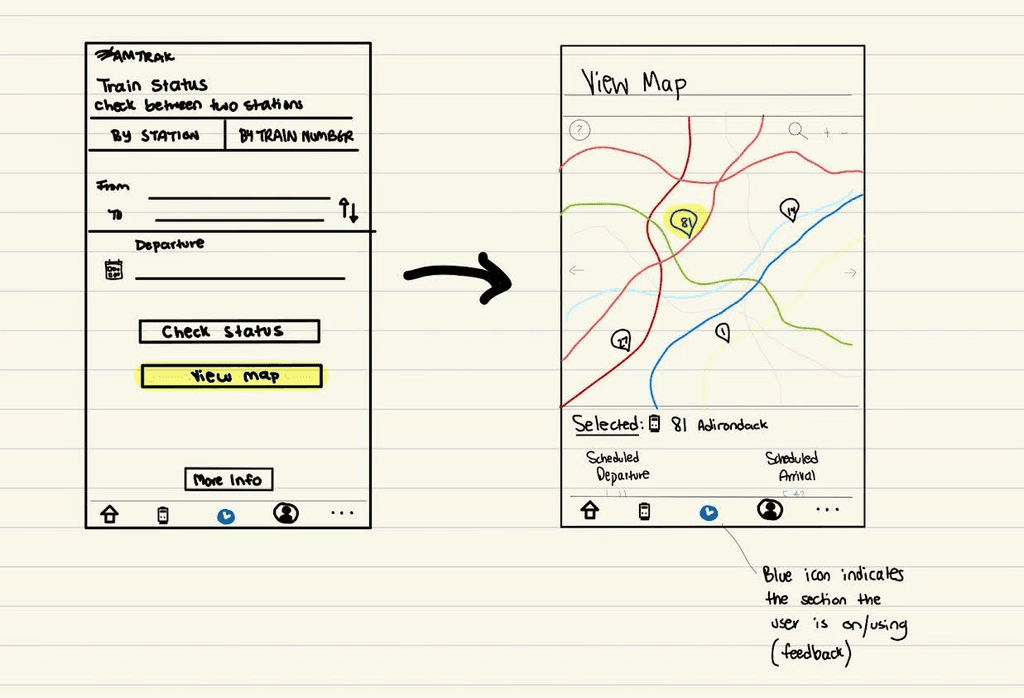 AMTRAK
Train Status
check between two stations
BY STATION
BY TRAIN NUMBER
From
To
Departure
Check Status
View map
More Info
View Map
?
+ -
81
14
1
Selected: 81 Adirondack
Scheduled
Departure
Scheduled
Arrival
Blue icon indicates
the section the
user is on/using
(feedback)